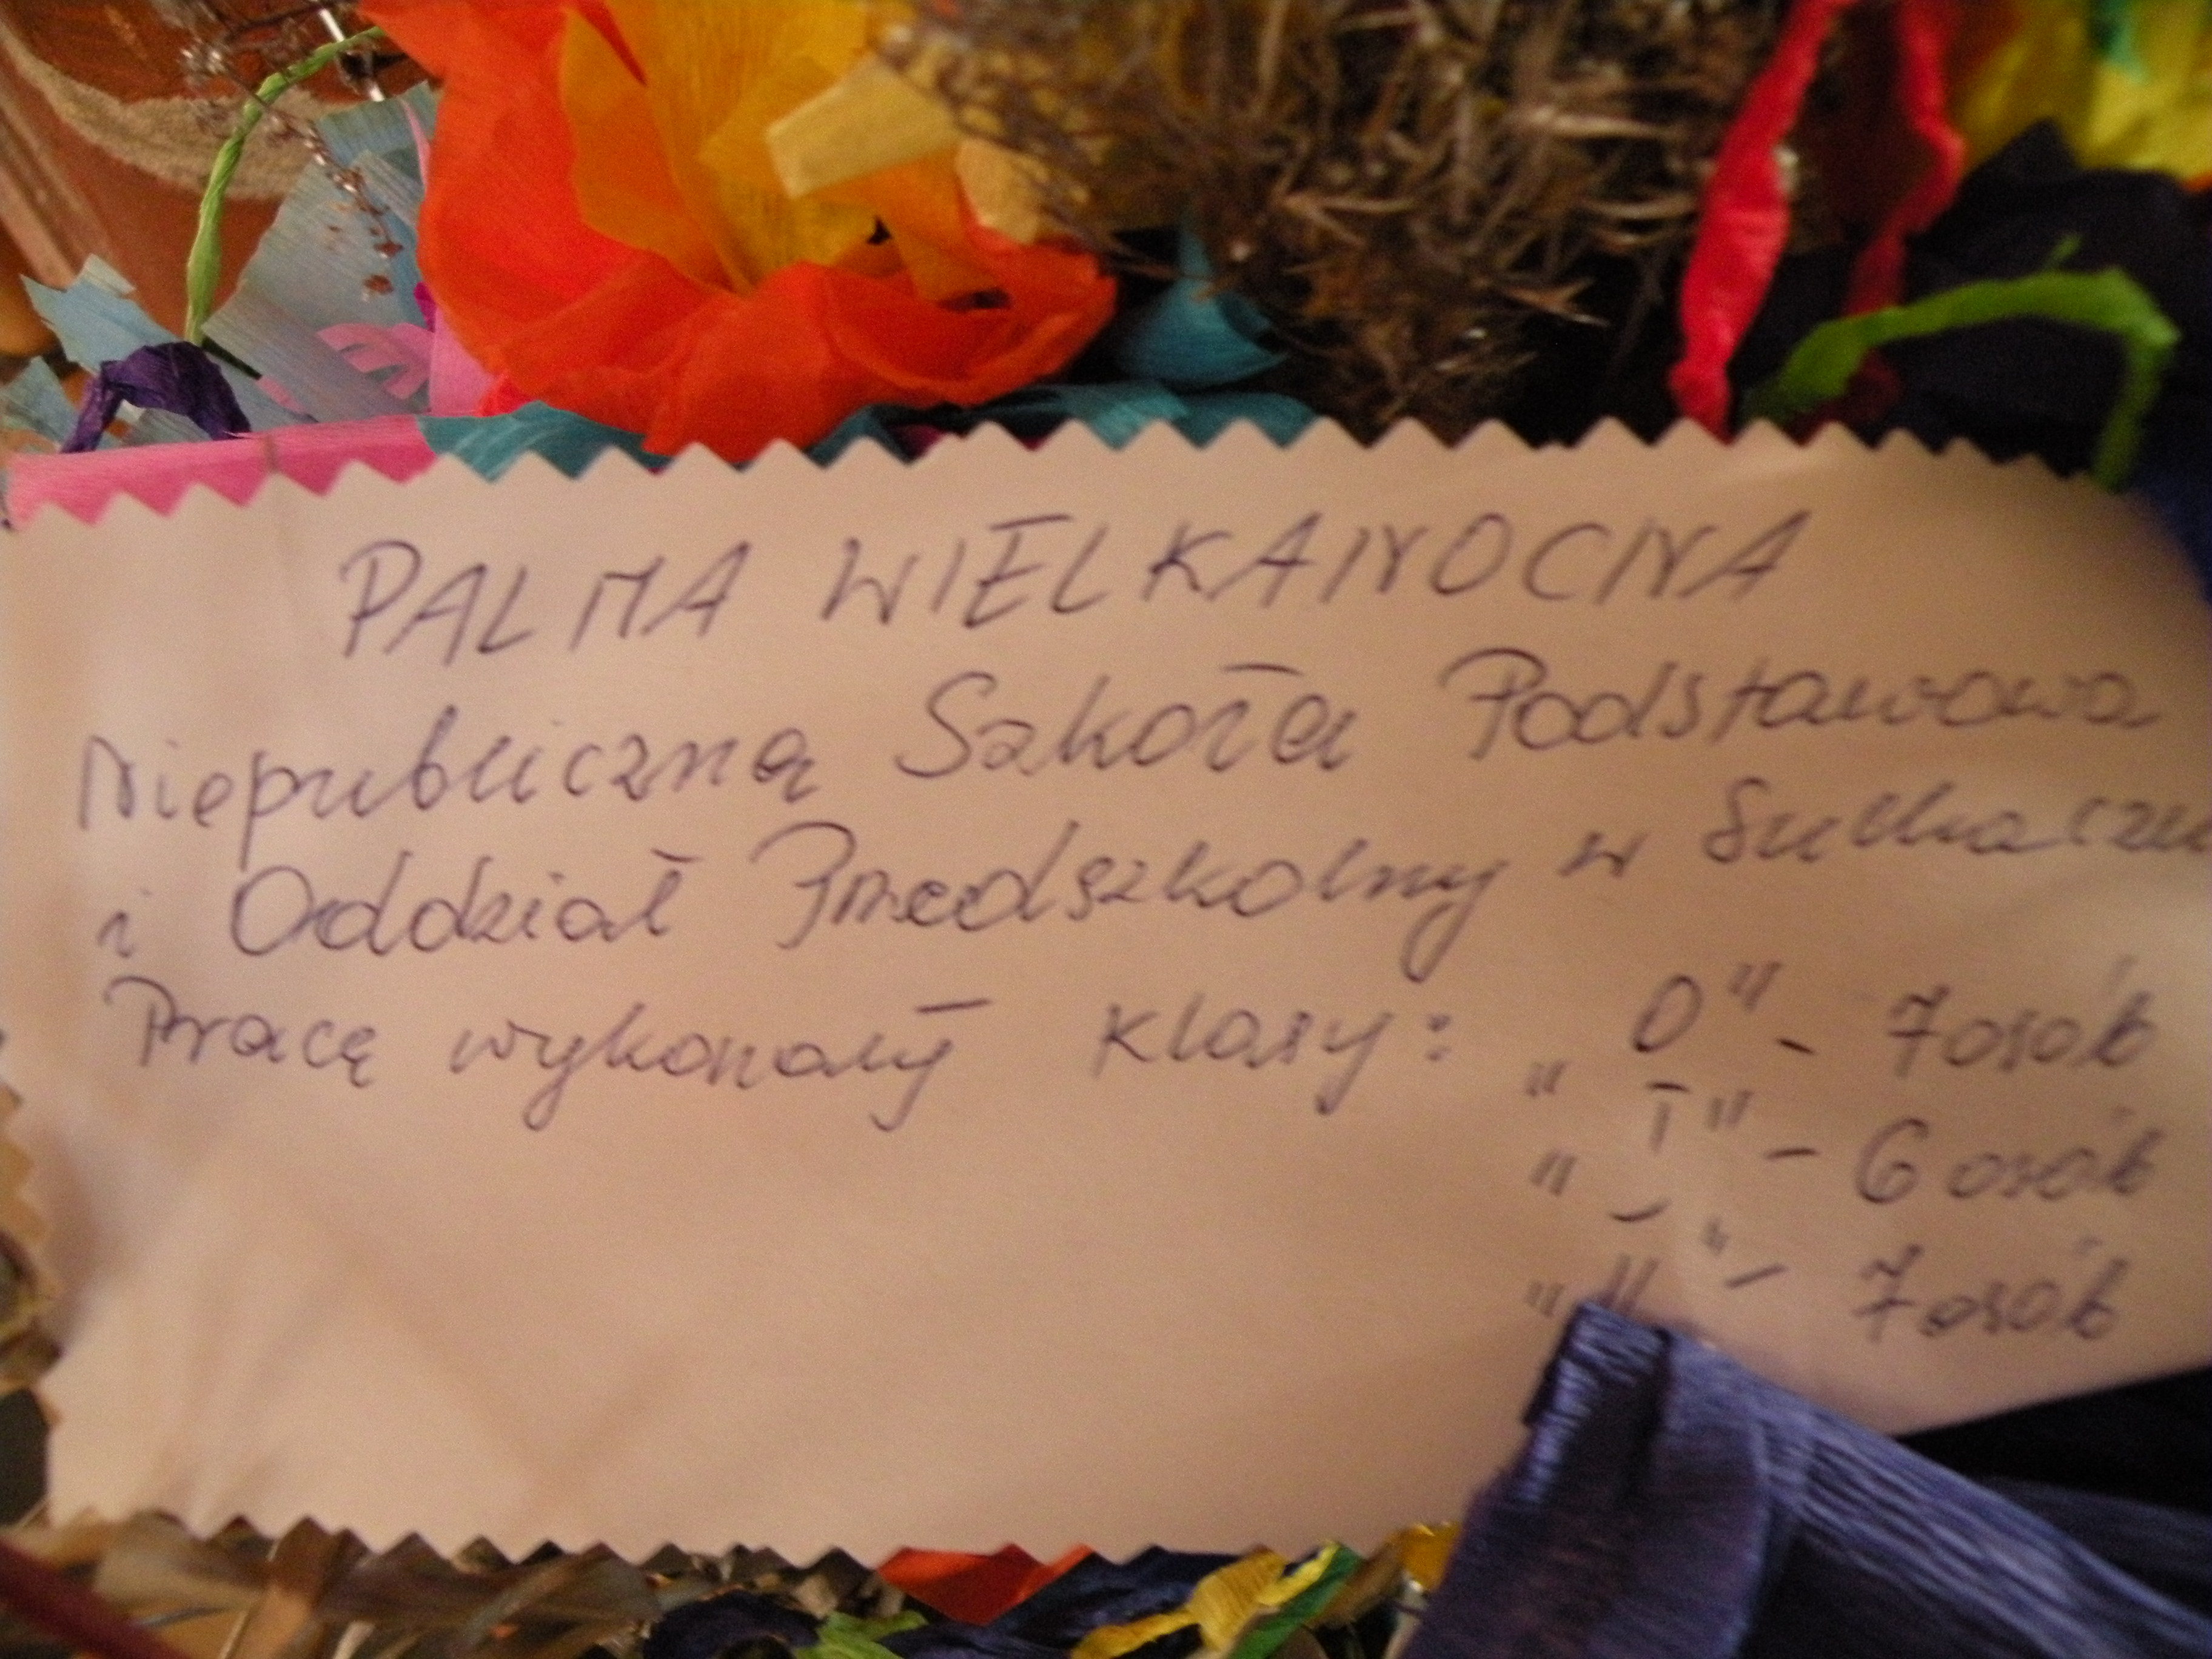 PALMA WIELKANOCNA
Niepubliczna Szkoła Podstawowa
i Oddział Przedszkolny w
Pracę wykonały klasy: „0" - 7 osób
„I" - 6 osób
" - 7 osób